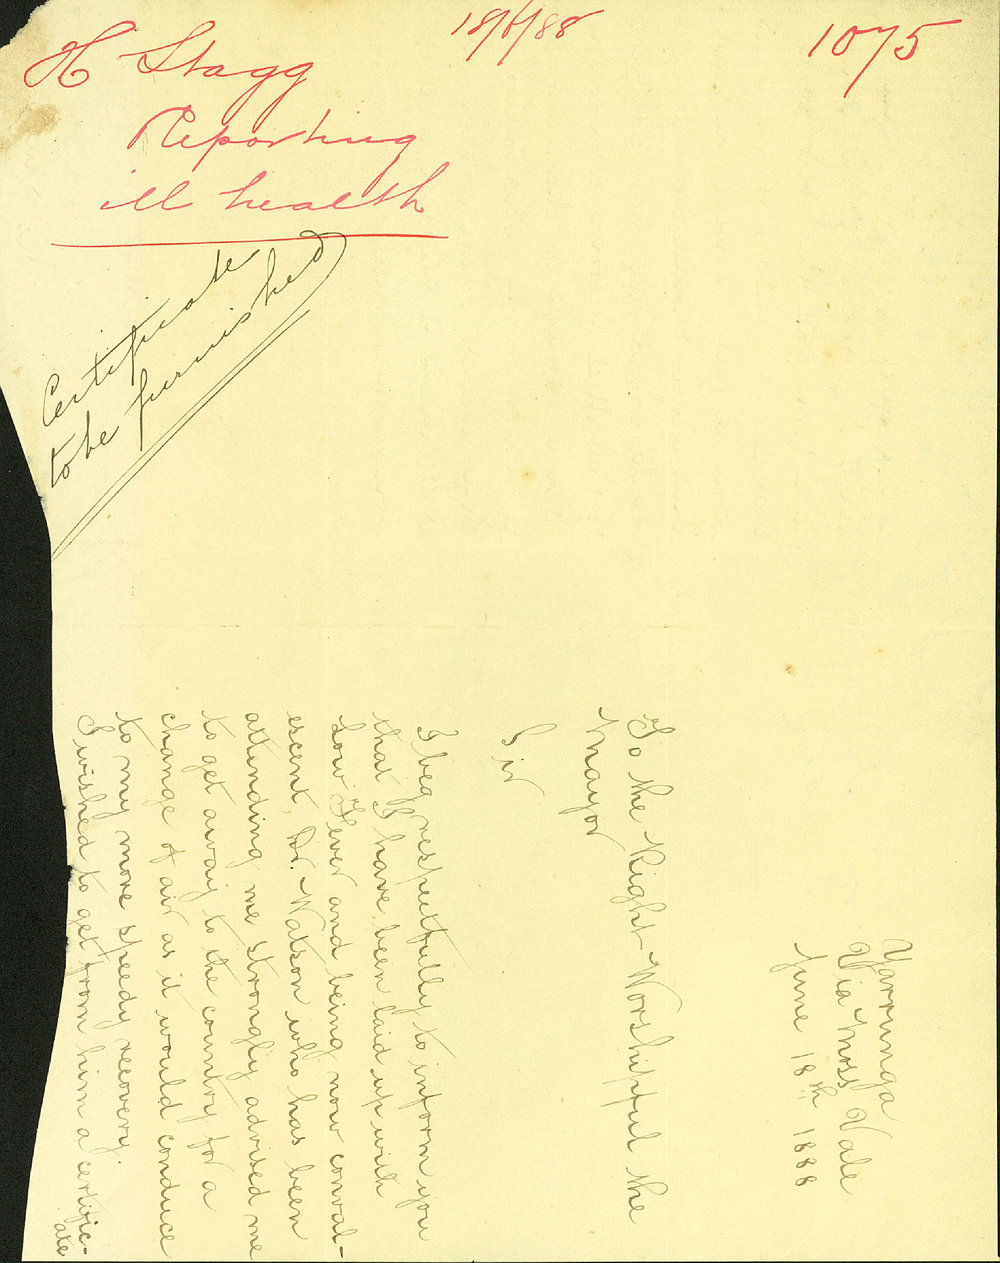 H Stagg
Reporting
ill health
18/6/88
1075
Certificate
to be furnished
Yarrunga
Via Moss Vale
June 18th 1888
To the Right Worshipful the
Mayor
Sir
I beg respectfully to inform you
that I have been laid up with
Low Fever and being now conval-
escent, Dr. Watson who has been
attending me strongly advised me
to get away to the country for a
change of air as it would conduce
to my more speedy recovery.
I wished to get from him a certific-
ate